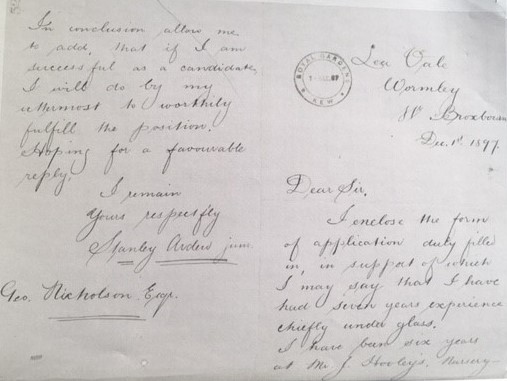 Lea Vale
Wormley
Nr Broxbourne
Dec. 1st 1897
ROYAL GARDENS
KEW
Dear Sir,
I enclose the form
of application duly filled
in, in support of which
I may say that I have
had seven years experience
chiefly under glass.
I have been six years
at Mr. J. Nursery
In conclusion allow me
to add, that if I am
successful as a candidate,
I will do by my
uttermost to worthily
fulfill the position.
Hoping for a favourable
reply,
I remain
Yours respectfly
Stanley Arden junr.
Geo. Nicholson Esqr.